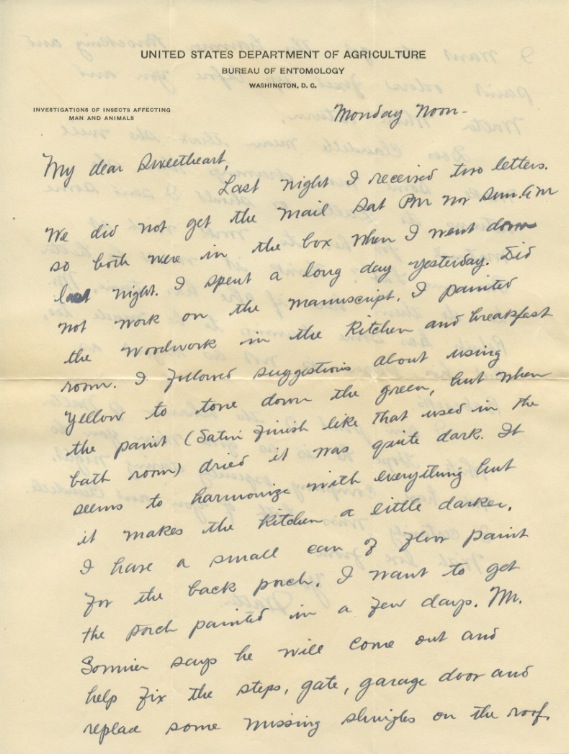 UNITED STATES DEPARTMENT OF AGRICULTURE
BUREAU OF ENTOMOLOGY
WASHINGTON, D. C.
INVESTIGATIONS OF INSECTS AFFECTING
MAN AND ANIMALS
Monday Noon-
My dear Sweetheart,
Last night I received two letters.
We did not get the mail Sat PM nor Sun. A M
so both were in the box when I went down
last night. I spent a long day yesterday. Did
not work on the manuscript. I painted
the woodwork in the kitchen and breakfast
room. I followed suggestions about using
yellow to tone down the green, but when
the paint (Satin finish like that used in the
bath room) dried it was quite dark. It
seems to harmonize with everything but
it makes the kitchen a little darker.
I have a small can of floor paint
for the back porch. I want to get
the porch painted in a few days. Mr.
says he will come out and
help fix the steps, gate, garage door and
replace some missing shingles on the roof.